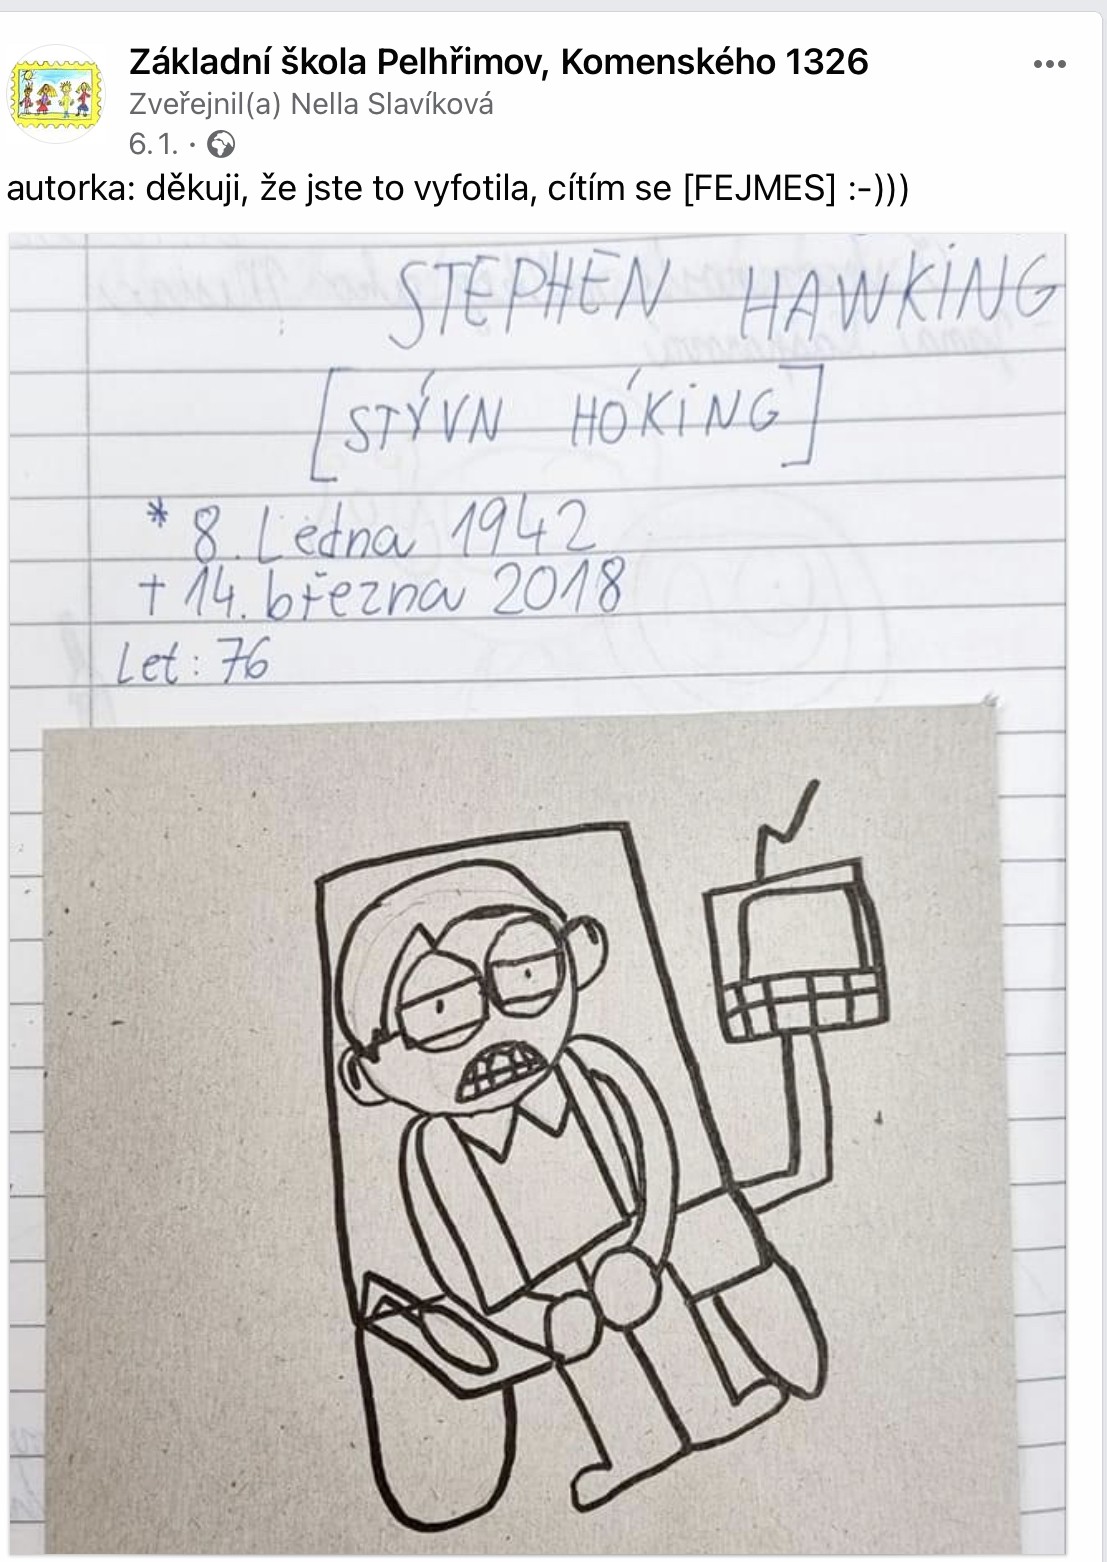 Základní škola Pelhřimov, Komenského 1326
Zveřejnil(a) Nella Slavíková
6. 1. ·
autorka: děkuji, že jste to vyfotila, cítím se [FEJMES] :-)))
STEPHEN HAWKING
[STÝVN HÓKING]
* 8. Ledna 1942
+ 14. března 2018
Let: 76